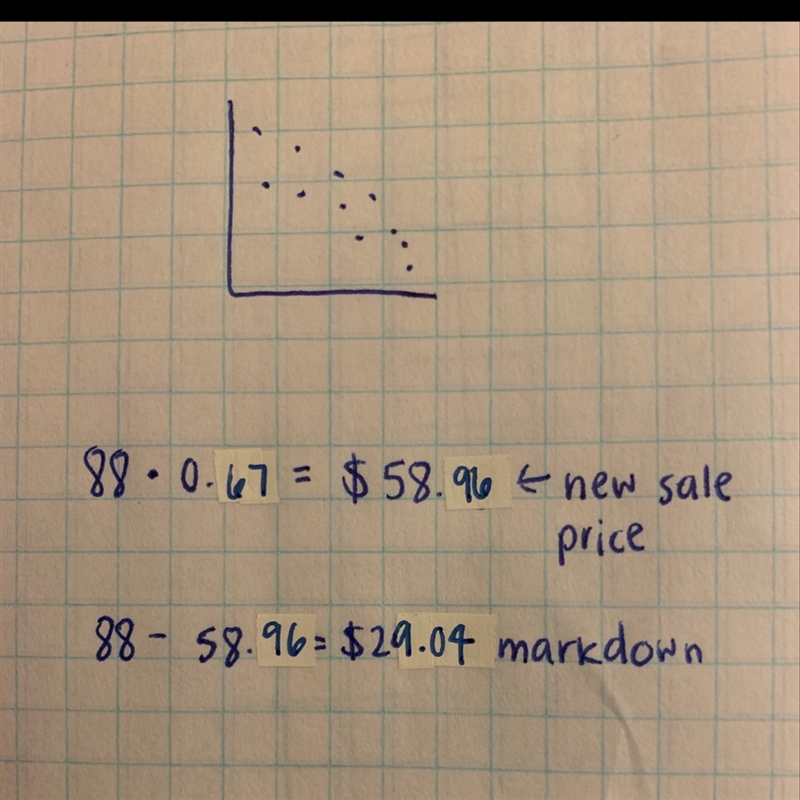 88 · 0.67 = $58.96 ← new sale
price
88 - 58.96 = $29.04 markdown